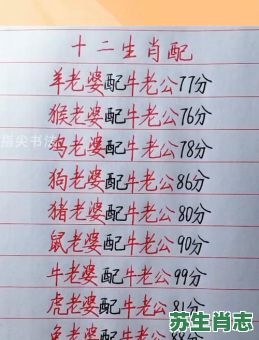 十二生肖配
羊老婆配牛老公77分
猴老婆配牛老公76分
指尖书法
鸟老婆配牛老公78分
狗老婆配牛老公86分
猪老婆配牛老公80分
鼠老婆配牛老公90分
牛老婆配牛老公99分
虎老婆配牛老公81分
苏生肖志
兔老婆配